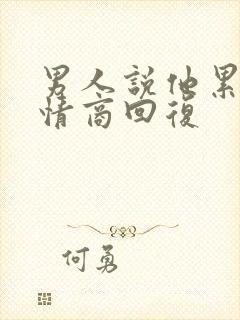 男人說他累
情商回復
何勇